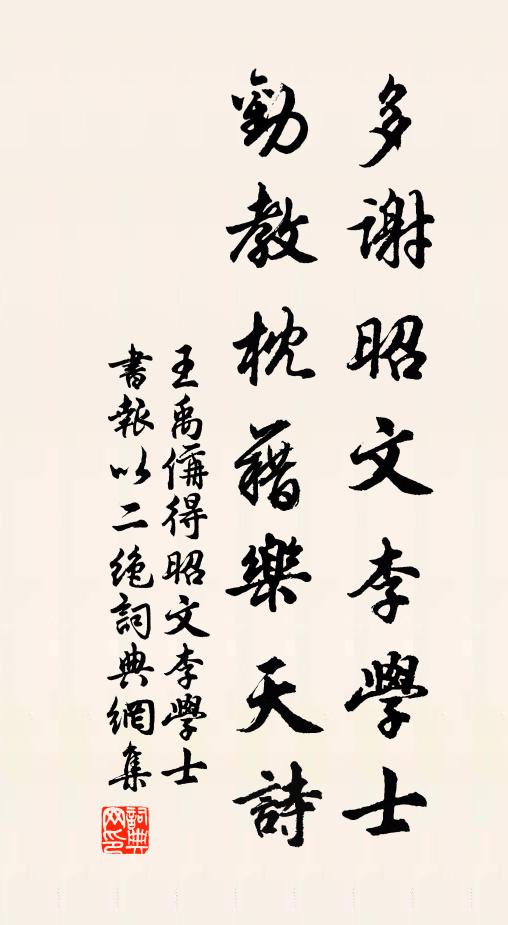 多謝昭文李學士
勸教枕藉樂天詩
王禹偁得昭文李學士
書報以二絶詞典網集
詞典
网印